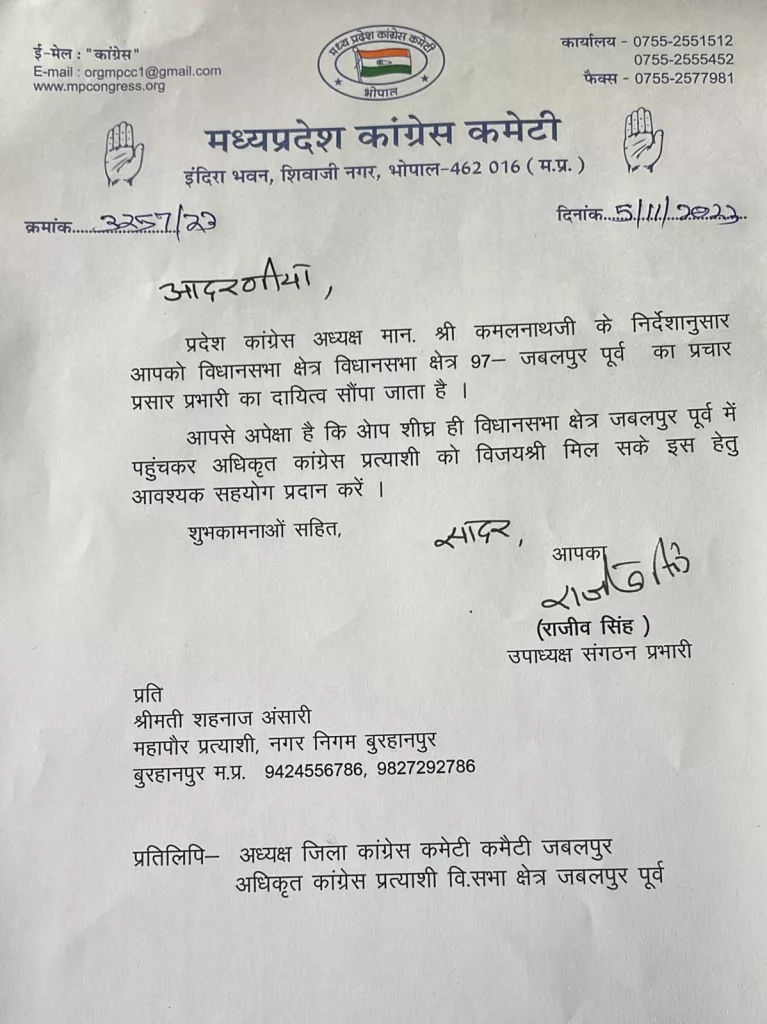 ई-मेल : "कांग्रेस"
E-mail : orgmpcc1@gmail.com
www.mpcongress.org
मध्य प्रदेश कांग्रेस कमेटी
भोपाल
कार्यालय - 0755-2551512
0755-2555452
फैक्स - 0755-2577981
मध्यप्रदेश कांग्रेस कमेटी
इंदिरा भवन, शिवाजी नगर, भोपाल-462 016 ( म.प्र. )
क्रमांक......3257/23
दिनांक....5/11/2023..
आदरणीया,
प्रदेश कांग्रेस अध्यक्ष मान. श्री कमलनाथजी के निर्देशानुसार
आपको विधानसभा क्षेत्र विधानसभा क्षेत्र 97– जबलपुर पूर्व का प्रचार
प्रसार प्रभारी का दायित्व सौंपा जाता है ।
आपसे अपेक्षा है कि अेाप शीघ्र ही विधानसभा क्षेत्र जबलपुर पूर्व में
पहुंचकर अधिकृत कांग्रेस प्रत्याशी को विजयश्री मिल सके इस हेतु
आवश्यक सहयोग प्रदान करें ।
शुभकामनाओं सहित,
सादर,
आपका
(राजीव सिंह )
उपाध्यक्ष संगठन प्रभारी
प्रति
श्रीमती शहनाज अंसारी
महापौर प्रत्याशी, नगर निगम बुरहानपुर
बुरहानपुर म.प्र. 9424556786, 9827292786
प्रतिलिपि– अध्यक्ष जिला कांग्रेस कमेटी कमैटी जबलपुर
अधिकृत कांग्रेस प्रत्याशी वि.सभा क्षेत्र जबलपुर पूर्व